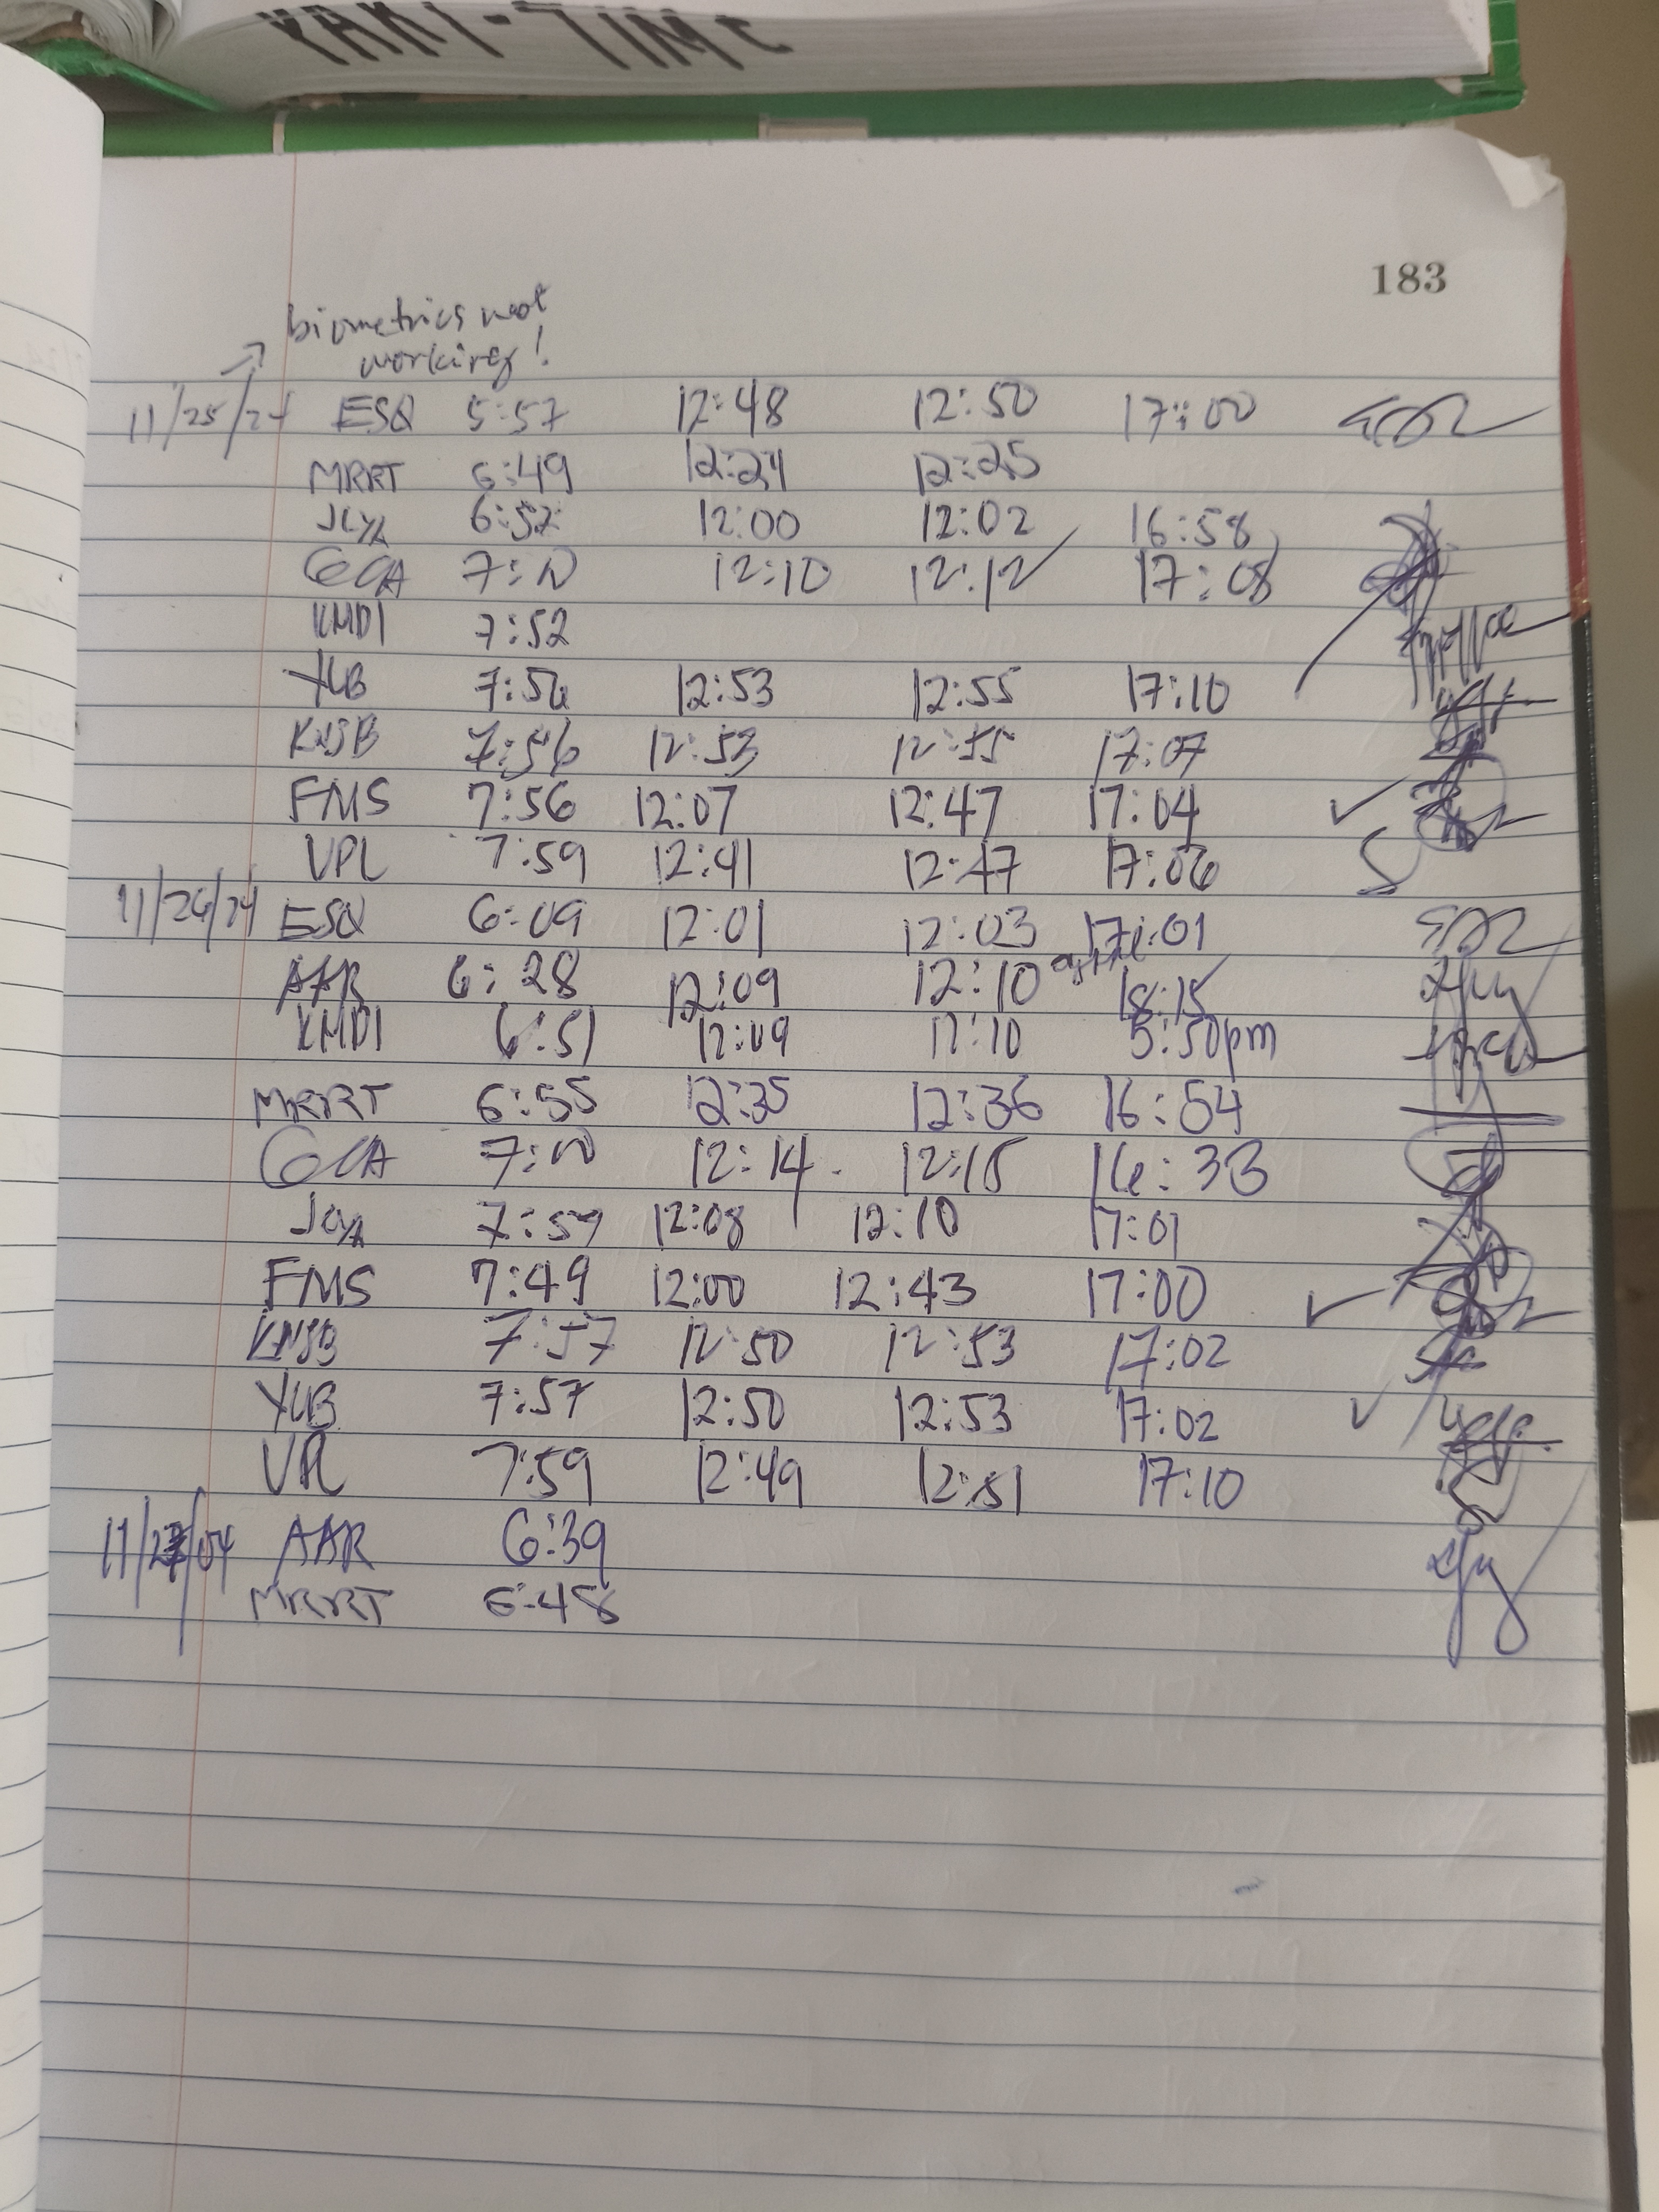 YAKI-TIME
183
biometrics not
working!
11/25/24 ESQ 5:57 12:48 12:50 17:00
MRRT 6:49 12:24 12:25
6:52 12:00 12:02 16:58
GCA 7:00 12:10 12:12 17:08
KMDI 7:52
YLB 7:54 12:53 12:55 17:10
KNJB 7:56 12:53 12:55 17:07
FMS 7:56 12:07 12:47 17:04
VPL 7:59 12:41 12:47 17:06
11/26/24 ESQ 6:09 12:01 12:03 17:01
AAR 6:28 12:09 12:10 18:15
KMDI 6:51 12:09 12:10 5:50pm
MRRT 6:55 12:35 12:36 16:54
GCA 7:00 12:14 12:15 16:33
7:59 12:08 12:10 17:01
FMS 7:49 12:00 12:43 17:00
KNJB 7:57 12:50 12:53 17:02
YLB 7:57 12:50 12:53 17:02
VPL 7:59 12:49 12:51 17:10
11/27/04 AAR 6:39
MRRT 6:48